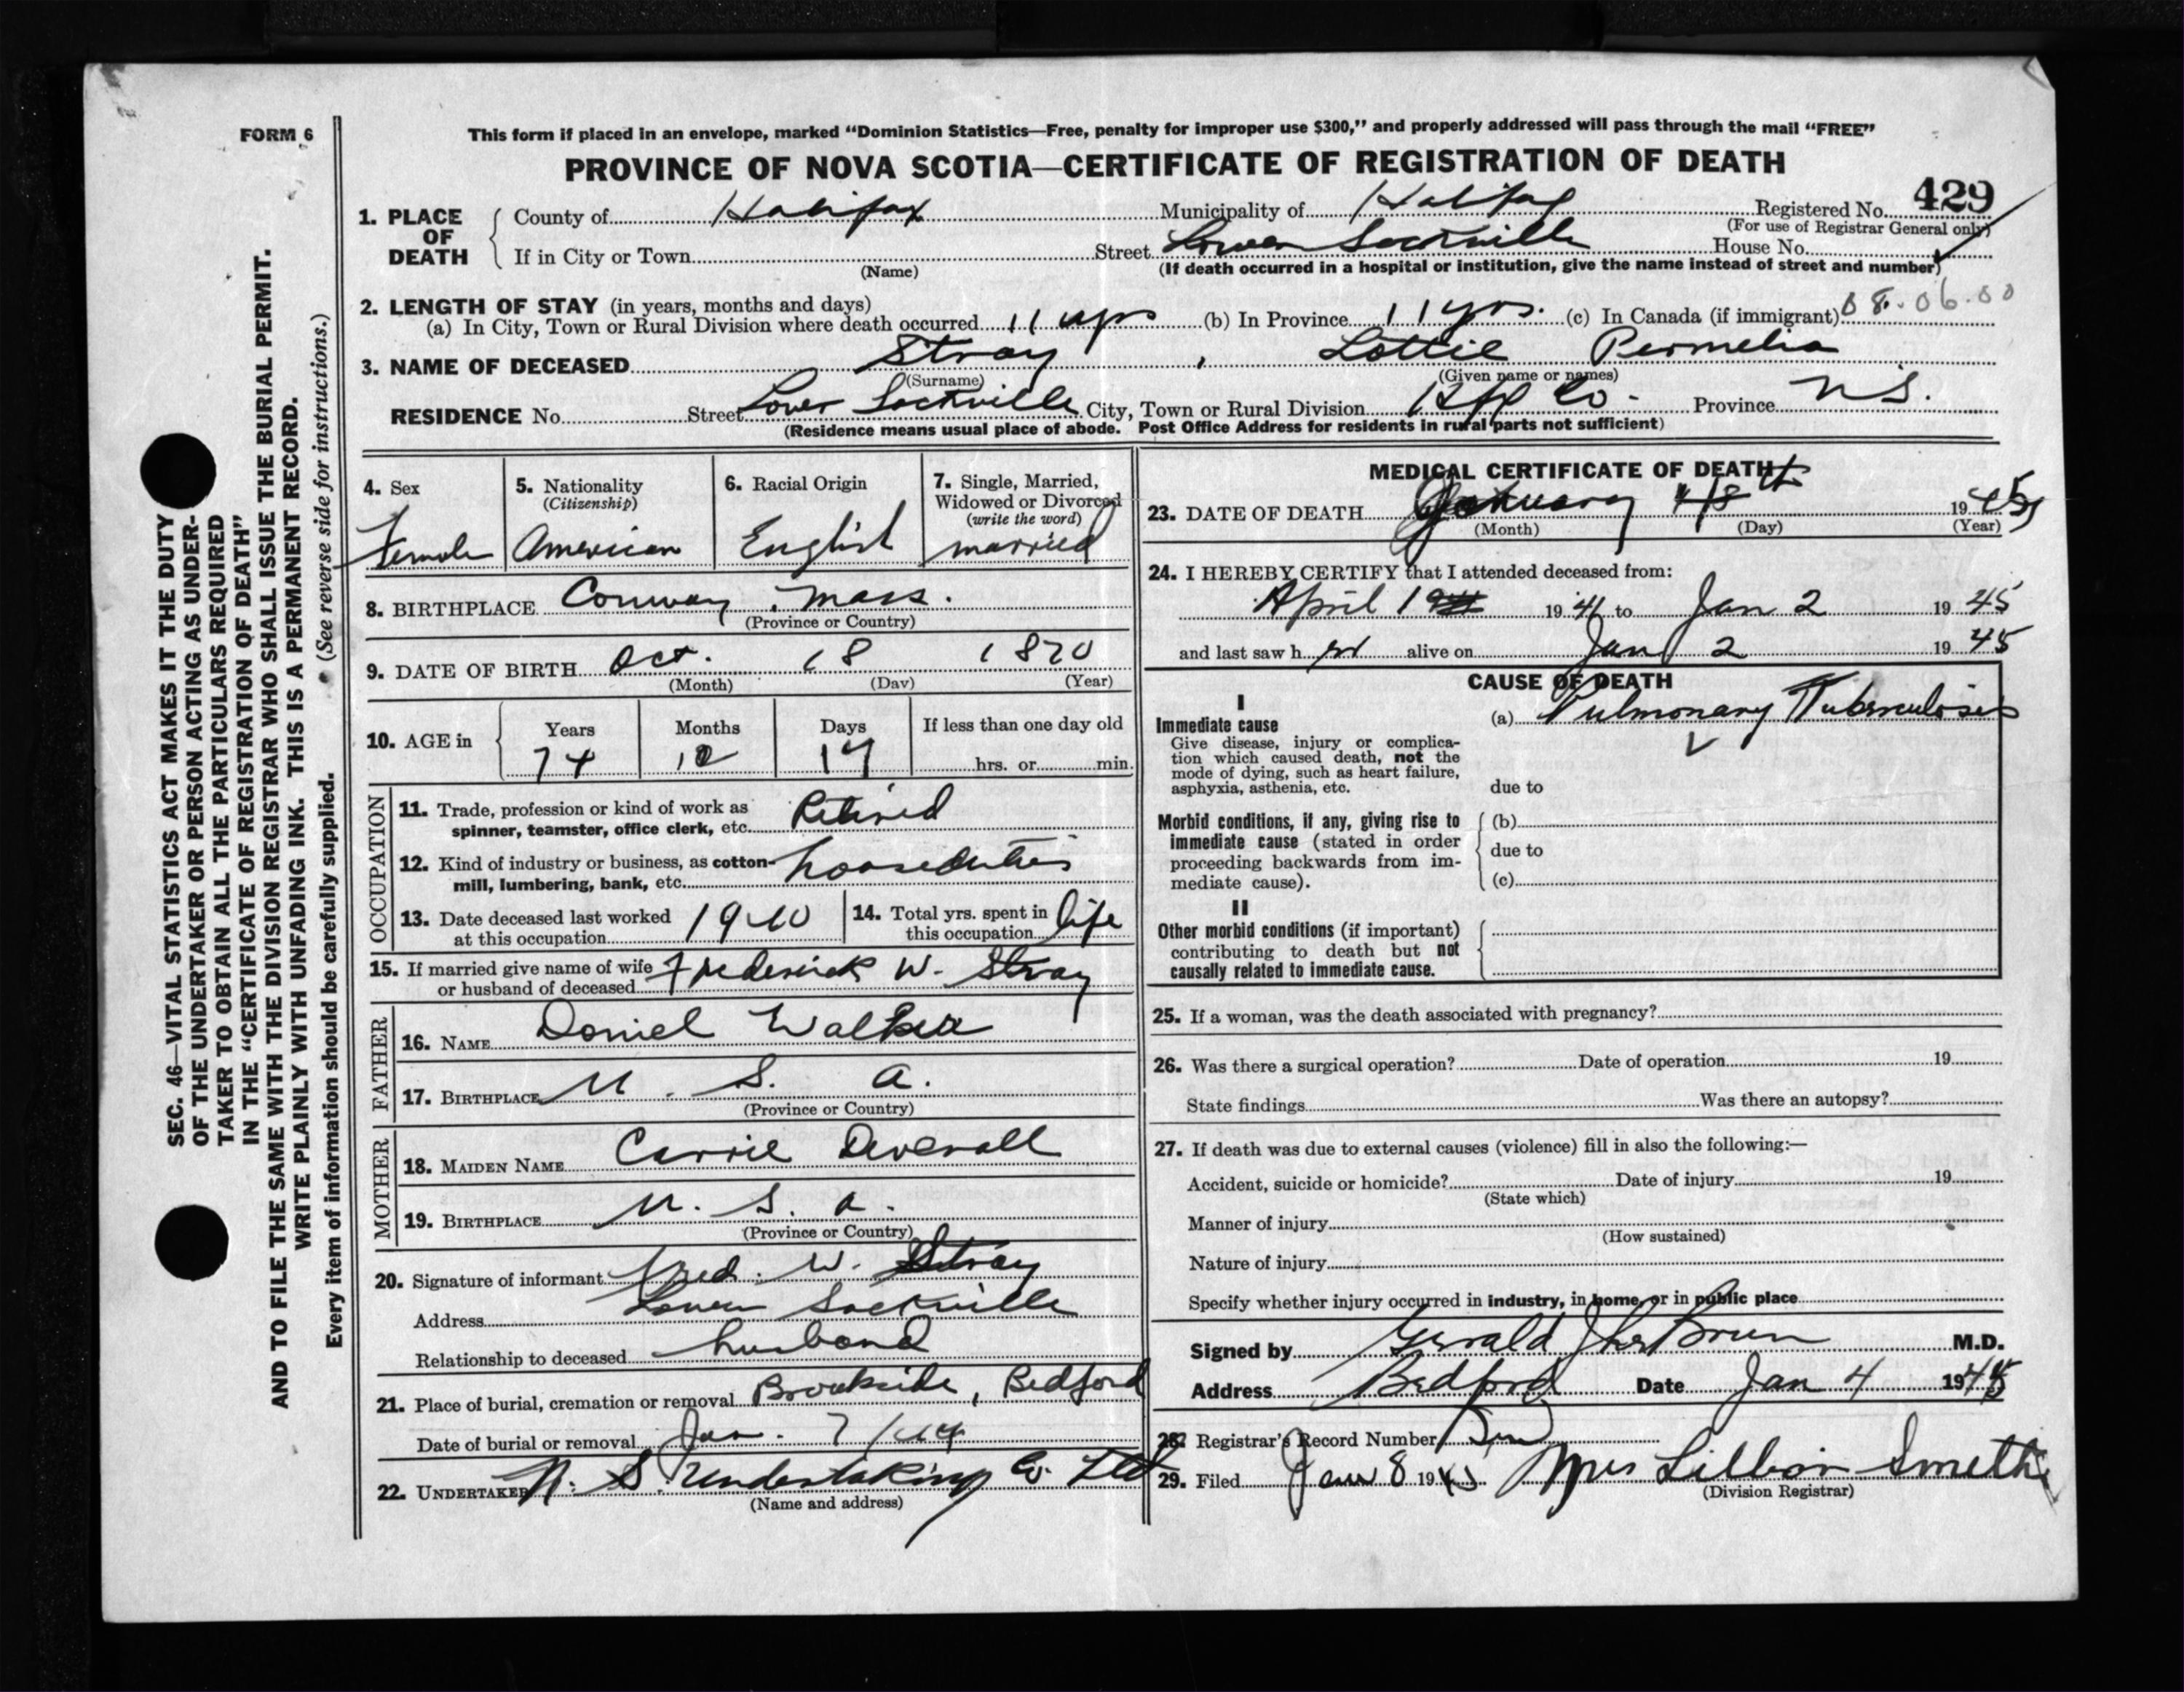 FORM 6
This form if placed in an envelope, marked "Dominion Statistics—Free, penalty for improper use $300," and properly addressed will pass through the mail "FREE"
PROVINCE OF NOVA SCOTIA—CERTIFICATE OF REGISTRATION OF DEATH
SEC. 46—VITAL STATISTICS ACT MAKES IT THE DUTY
OF THE UNDERTAKER OR PERSON ACTING AS UNDER-
TAKER TO OBTAIN ALL THE PARTICULARS REQUIRED
IN THE "CERTIFICATE OF REGISTRATION OF DEATH"
AND TO FILE THE SAME WITH THE DIVISION REGISTRAR WHO SHALL ISSUE THE BURIAL PERMIT.
WRITE PLAINLY WITH UNFADING INK. THIS IS A PERMANENT RECORD.
Every item of information should be carefully supplied. (See reverse side for instructions.)
1. PLACE OF DEATH
County of Halifax Municipality of Halifax Registered No. 429
(For use of Registrar General only)
If in City or Town Street Lower Sackville House No.
(Name) (If death occurred in a hospital or institution, give the name instead of street and number)
2. LENGTH OF STAY (in years, months and days)
(a) In City, Town or Rural Division where death occurred 11 yrs (b) In Province 11 yrs. (c) In Canada (if immigrant) 08.06.00
3. NAME OF DECEASED Stray , Lottie Permelia
(Surname) (Given name or names)
RESIDENCE No. Street Lower Sackville City, Town or Rural Division Hfx Co. Province N.S.
(Residence means usual place of abode. Post Office Address for residents in rural parts not sufficient)
4. Sex Female
5. Nationality (Citizenship) American
6. Racial Origin English
7. Single, Married, Widowed or Divorced (write the word) married
8. BIRTHPLACE Conway, Mass.
(Province or Country)
9. DATE OF BIRTH Oct. 18 1870
(Month) (Day) (Year)
10. AGE in Years 74 Months Days 17 If less than one day old hrs. or min.
OCCUPATION
11. Trade, profession or kind of work as spinner, teamster, office clerk, etc. Retired
12. Kind of industry or business, as cotton-mill, lumbering, bank, etc. houseduties
13. Date deceased last worked at this occupation 1940
14. Total yrs. spent in this occupation life
15. If married give name of wife or husband of deceased Frederick W. Stray
FATHER
16. NAME Daniel Walker
17. BIRTHPLACE U.S.A.
(Province or Country)
MOTHER
18. MAIDEN NAME Carrie Deverall
19. BIRTHPLACE U.S.A.
(Province or Country)
20. Signature of informant Fred. W. Stray
Address Lower Sackville
Relationship to deceased husband
21. Place of burial, cremation or removal Brookside, Bedford
Date of burial or removal Jan. 7/44
22. UNDERTAKER N.S. Undertaking Co. Ltd
(Name and address)
MEDICAL CERTIFICATE OF DEATH
23. DATE OF DEATH January 1945
(Month) (Day) (Year)
24. I HEREBY CERTIFY that I attended deceased from:
April 19 1941 to Jan 2 1945
and last saw her alive on Jan 2 1945
CAUSE OF DEATH
I
Immediate cause
Give disease, injury or complica-
tion which caused death, not the
mode of dying, such as heart failure,
asphyxia, asthenia, etc.
(a) Pulmonary Tuberculosis
due to
Morbid conditions, if any, giving rise to
immediate cause (stated in order
proceeding backwards from im-
mediate cause).
(b)
due to
(c)
II
Other morbid conditions (if important)
contributing to death but not
causally related to immediate cause.
25. If a woman, was the death associated with pregnancy?
26. Was there a surgical operation? Date of operation 19
State findings Was there an autopsy?
27. If death was due to external causes (violence) fill in also the following:—
Accident, suicide or homicide? Date of injury 19
(State which)
Manner of injury
(How sustained)
Nature of injury
Specify whether injury occurred in industry, in home, or in public place
Signed by Gerald M.D.
Address Bedford Date Jan 4 1945
28. Registrar's Record Number
29. Filed Jan 8 1945 Mrs Lillian Smith
(Division Registrar)